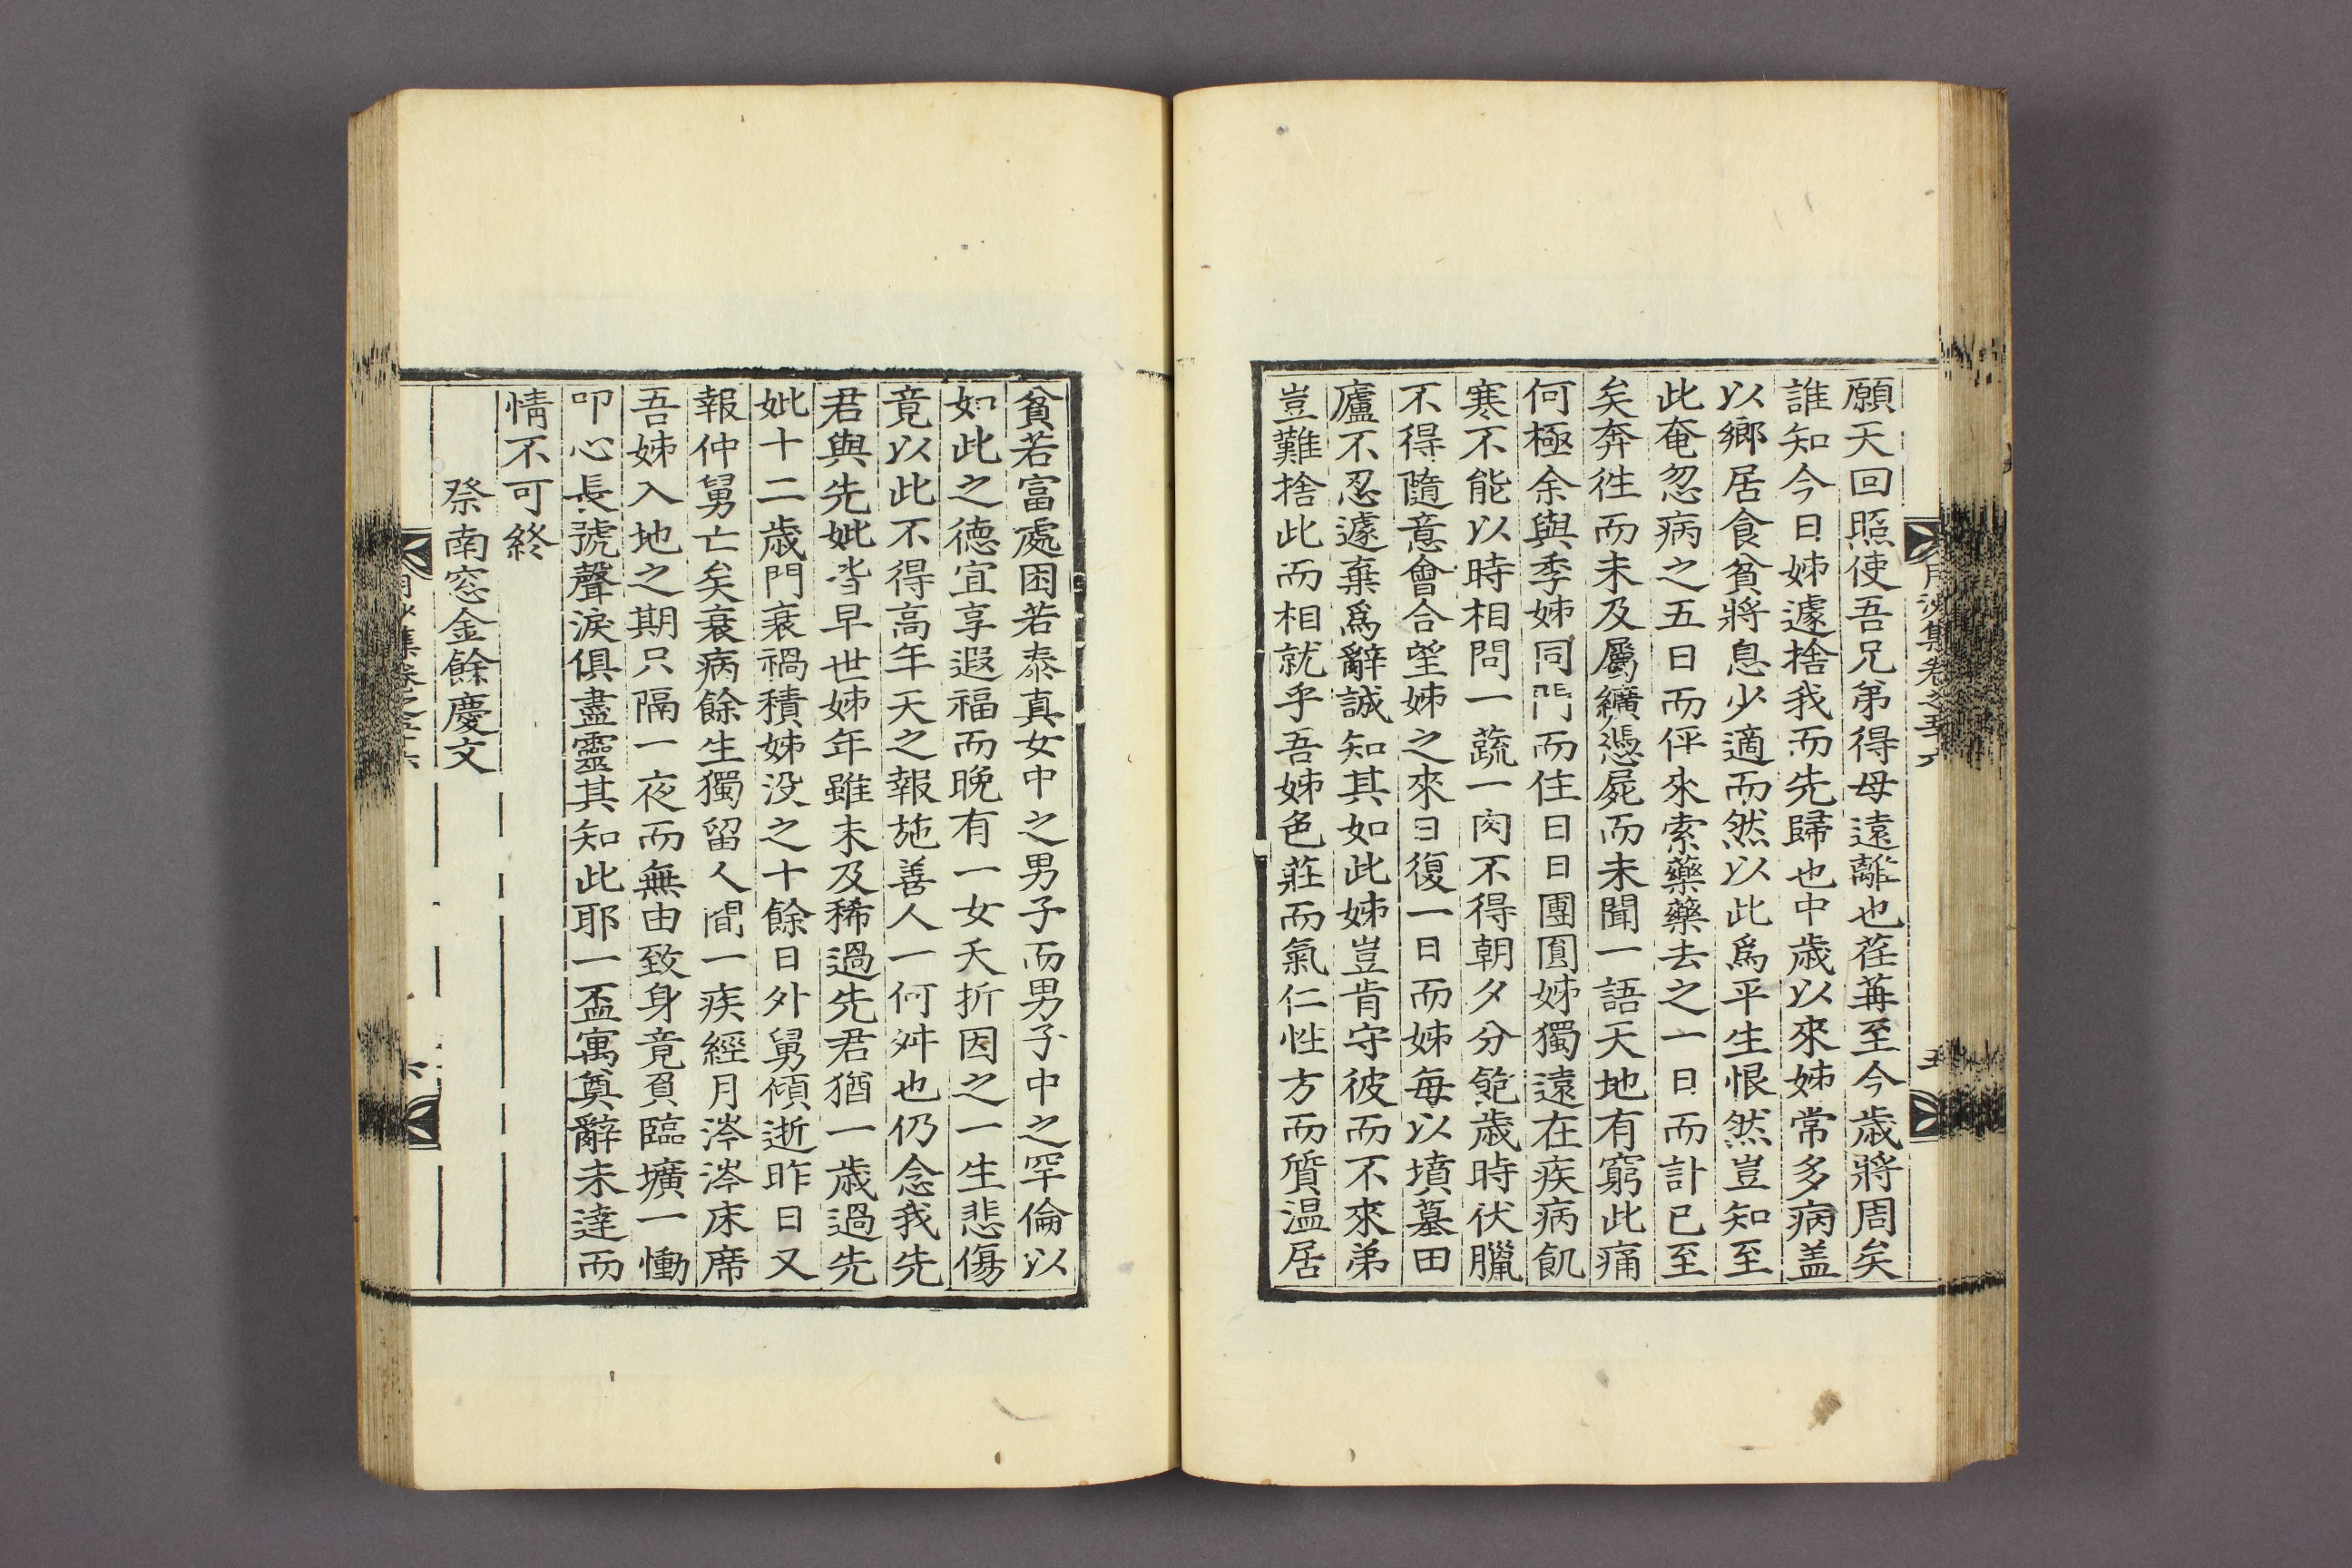 願天回照使吾兄弟得母遠離也荏苒至今歲將周矣
誰知今日姊遽捨我而先歸也中歲以來姊常多病盖
以鄉居食貧將息少適而然以此爲平生恨然豈知至
此奄忽病之五日而伻來索藥藥去之一日而訃已至
矣奔徃而未及屬纊憑屍而未聞一語天地有窮此痛
何極余與季姊同門而住日日團圓姊獨遠在疾病飢
寒不能以時相問一蔬一肉不得朝夕分飽歲時伏臘
不得隨意會合望姊之來曰復一日而姊每以墳墓田
廬不忍遽棄爲辭誠知其如此姊豈肯守彼而不來弟
豈難捨此而相就乎吾姊色莊而氣仁性方而質温居
貧若富處困若泰真女中之男子而男子中之罕倫以
如此之德宜享遐福而晩有一女夭折因之一生悲傷
竟以此不得高年天之報施善人一何舛也仍念我先
君與先妣皆早世姊年雖未及稀過先君猶一歲過先
妣十二歲門衰禍積姊没之十餘日外舅傾逝昨日又
報仲舅亡矣衰病餘生獨留人間一疾經月涔涔床席
吾姊入地之期只隔一夜而無由致身竟負臨壙一慟
叩心長號聲淚俱盡靈其知此耶一盃寓奠辭未達而
情不可終
祭南窓金餘慶文